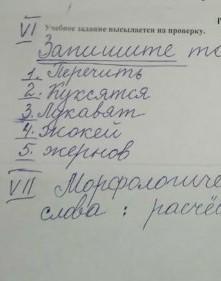 VI Учебное задание высылается на проверку.
Запишите
1. Перечить
2. Куксятся
3. Лукавят
4. Жокей
5. Жернов
VII Морфологиче
слова: расчёс